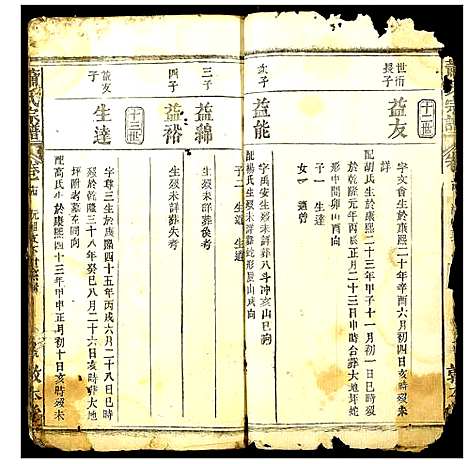 十二世
世術
授子
益友
字文會生於康熙二十年辛酉六月初四日亥時歿未
詳
配胡氏生於康熙二十三年甲子十一月初一日巳時歿
於乾隆元年丙辰正月二十一日合葬大地月形蛇
形中間卯山酉向
子一 生達
女一
次子
益能
字禹安生歿未詳葬八斗冲亥山巳向
配楊氏生歿未詳葬蛇形辰山戌向
子二 生道 生遠
三子
益綿
生歿未詳葬後失考
四子
益裕
生歿未詳葬失考
十三世
益友
子
生達
字尊三生於康熙四十五年丙戌六月二十八日巳時
歿於乾隆三十八年癸巳八月二十六日亥時葬大地
坪附考墓左同向
配高氏生於康熙四十三年甲申正月初十日亥時歿未
蕭氏宗譜
敦本堂